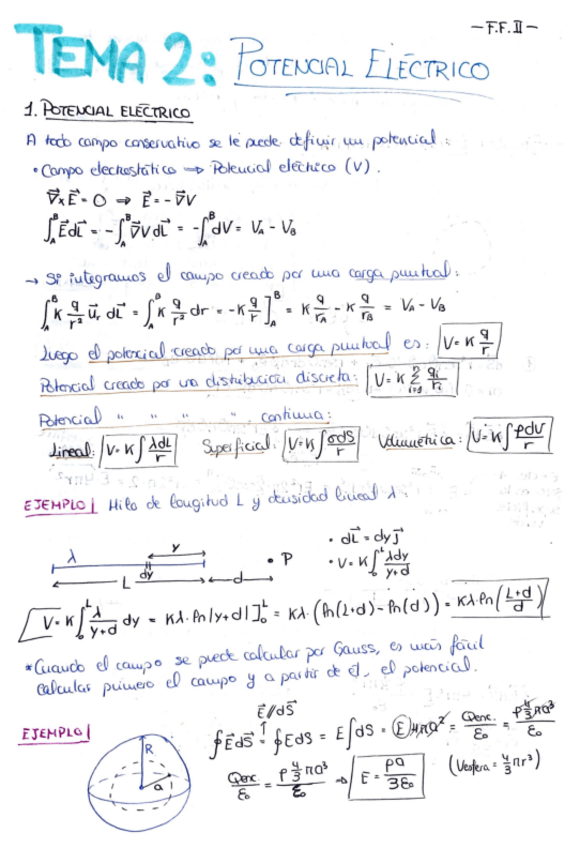 - F.F. II -
TEMA 2: POTENCIAL ELÉCTRICO
1. POTENCIAL ELÉCTRICO
A todo campo conservativo se le puede definir un potencial:
• Campo electrostático ⇒ Potencial eléctrico (V).
∇⃗×E⃗ = 0 ⇒ E⃗ = -∇⃗V
∫_A^B E⃗dL⃗ = -∫_A^B ∇⃗V dL⃗ = -∫_A^B dV = V_A - V_B
→ Si integramos el campo creado por una carga puntual:
∫_A^B K q/r² u⃗_r dL⃗ = ∫_A^B K q/r² dr = -K q/r ]_A^B = K q/r_A - K q/r_B = V_A - V_B
Luego el potencial creado por una carga puntual es: V = K q/r
Potencial creado por una distribución discreta: V = K Σ_{i=1} q_i/r_i
Potencial " " " ", continua:
Lineal: V = K∫ λdL/r Superficial: V = K∫ σdS/r Volumétrica: V = K∫ ρdV/r
EJEMPLO| Hilo de longitud L y densidad lineal λ.
λ y dy L d • P
• dL⃗ = dy j⃗
• V = K∫_0^L λdy/y+d
V = K∫_0^L λ/y+d dy = Kλ · ln|y+d|]_0^L = Kλ · (ln(L+d) - ln(d)) = Kλ · ln(L+d/d)
*Cuando el campo se puede calcular por Gauss, es más fácil
calcular primero el campo y a partir de él, el potencial.
EJEMPLO|
R a
E⃗//dS⃗
∮E⃗dS⃗ = ∮EdS = E∫dS = E 4πa² = Qenc./ε₀ = ρ 4/3 πa³/ε₀
Qenc./ε₀ = ρ 4/3 πa³/ε₀ ⇒ E = ρa/3ε₀ (Vesfera = 4/3 πr³)